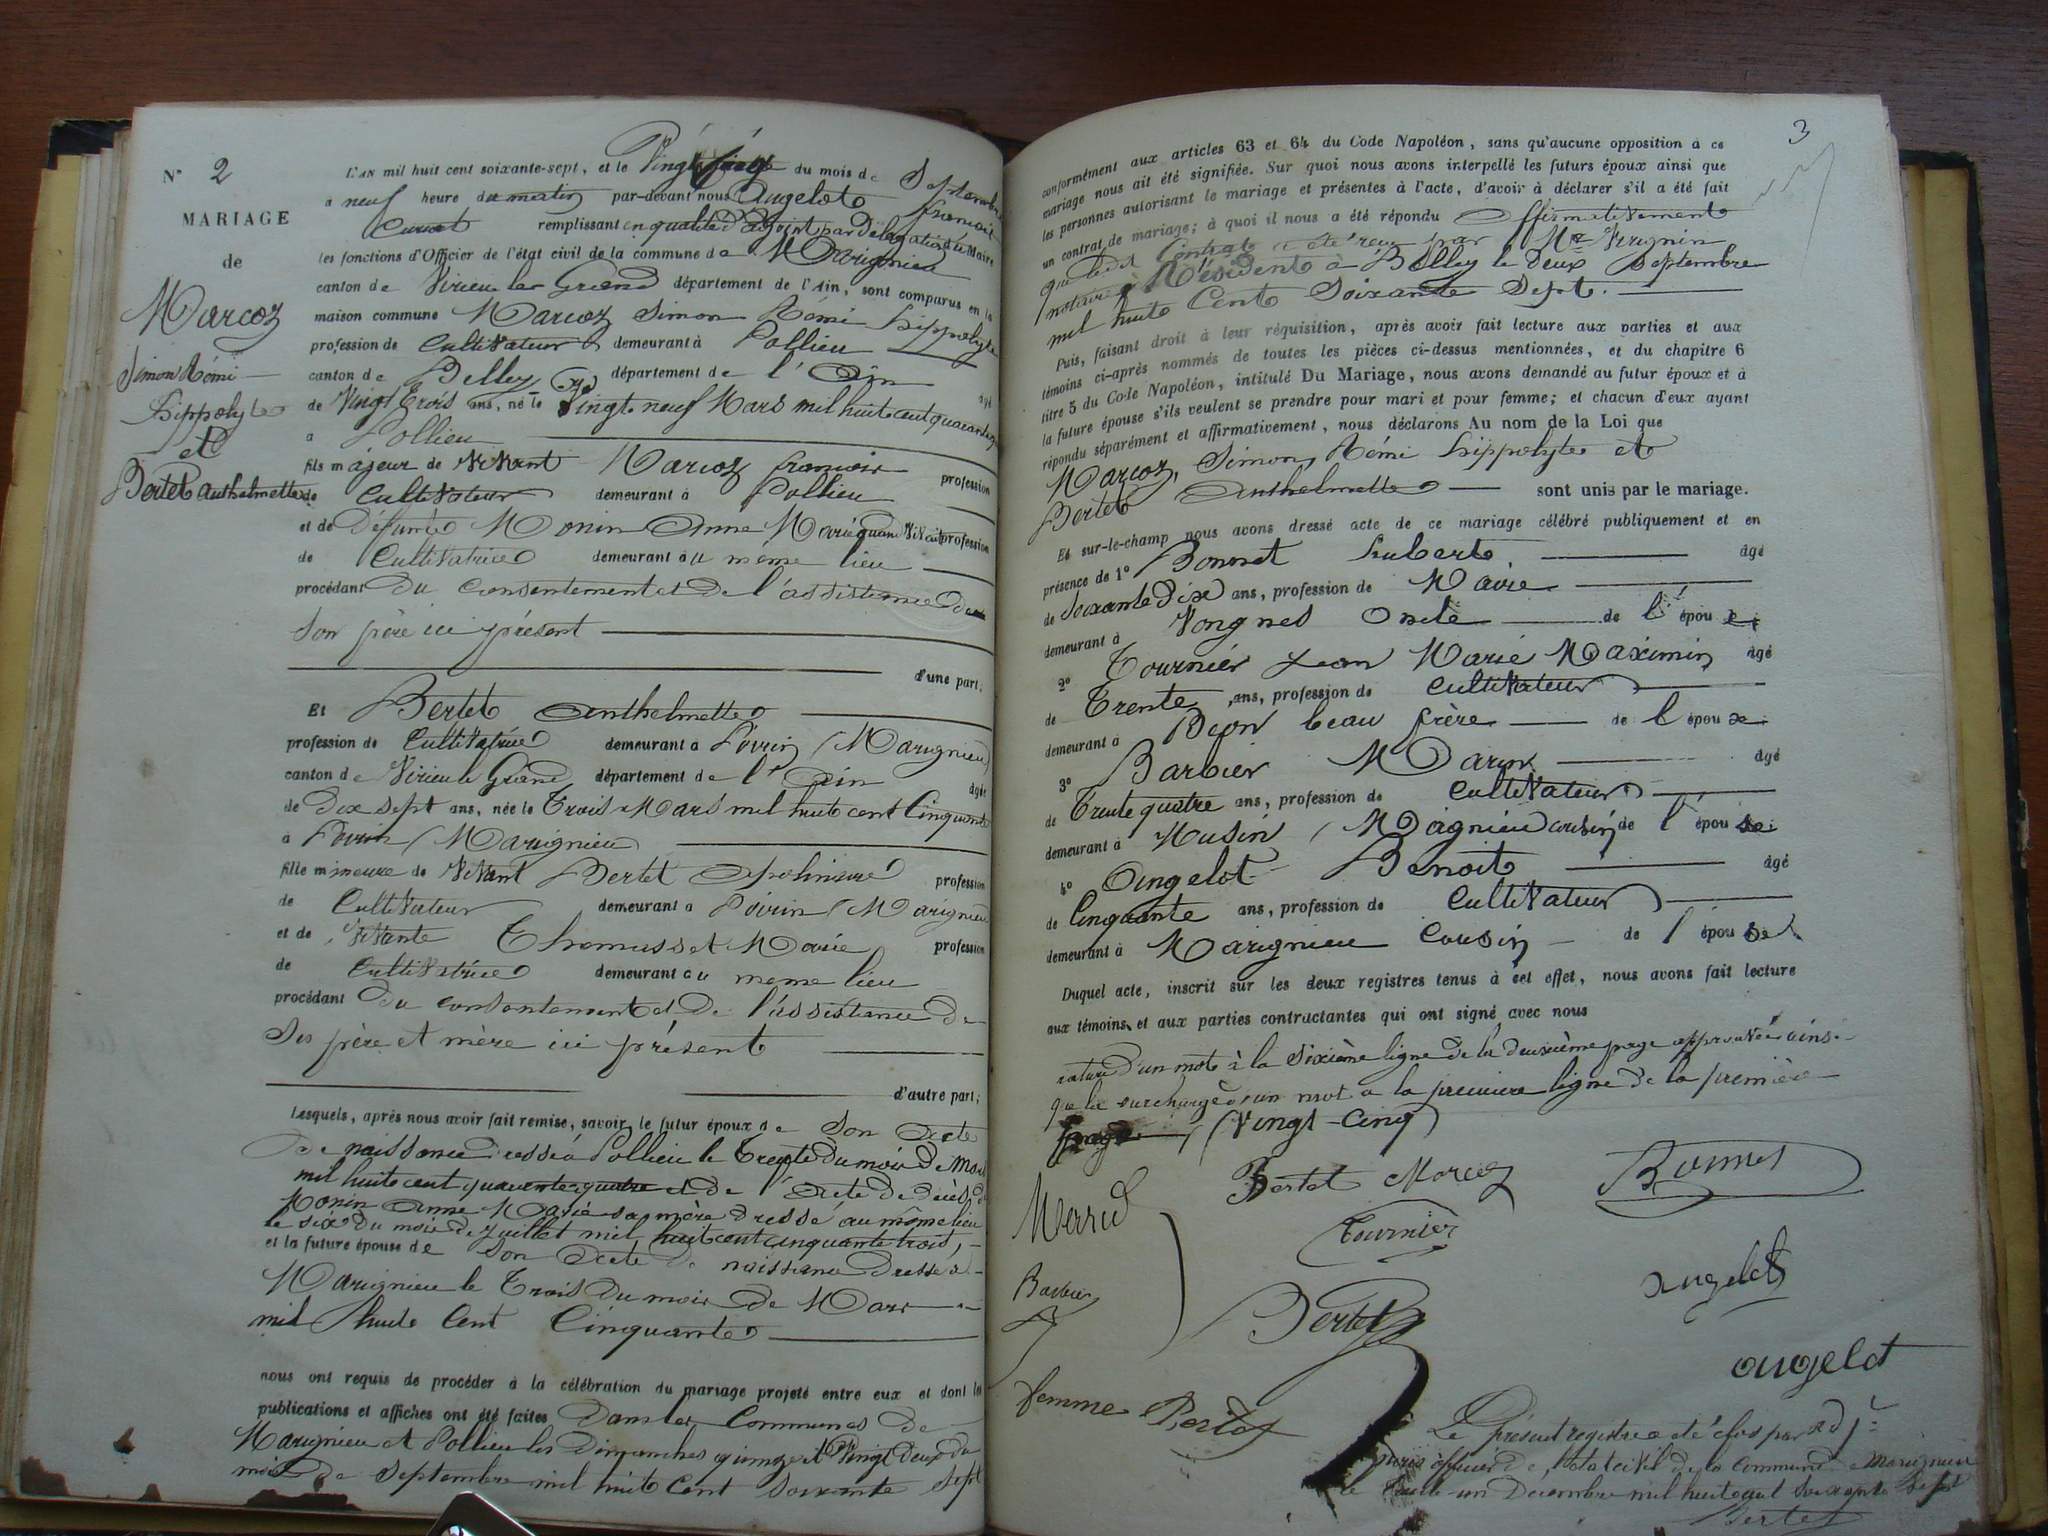 N° 2
MARIAGE
de
Marcoz
Simon Rémi
hippolyte
et
Bertet anthelmette
L'AN mil huit cent soixante-sept, et le Vingt cinq du mois de Septembre
a neuf heure du matin par-devant nous Angelot françois
remplissant en qualité d'adjoint par délégation du Maire
les fonctions d'Officier de l'état civil de la commune de Marignieu
canton de Virieu le Grand département de l'Ain, sont comparus en la
maison commune Marcoz Simon Rémi hippolyte
profession de Cultivateur demeurant à Pollieu
canton de Belley département de l'Ain âgé
de Vingt trois ans, né le Vingt neuf Mars mil huit cent quarante
a Pollieu
fils majeur de Vivant Marcoz françois profession
de Cultivateur demeurant à Pollieu
et de Défunte Monin Anne Marie quand Vivait profession
de Cultivatrice demeurant au meme lieu
procédant du consentement et de l'assistance de
son père ici présent
d'une part;
Et Bertet anthelmette
profession de Cultivatrice demeurant a Poirin (Marignieu)
canton de Virieu le Grand département de l'Ain âgée
de Dix sept ans, née le Trois Mars mil huit cent Cinquante
a Poirin (Marignieu)
fille mineure de Vivant Bertet Apolinaire profession
de Cultivateur demeurant a Poirin (Marignieu
et de Vivante Thomasset Marie profession
de Cultivatrice demeurant au meme lieu
procédant du consentement et de l'assistance de
ses père et mère ici présent
d'autre part;
Lesquels, après nous avoir fait remise, savoir, le futur époux de Son Acte
de naissance dressé à Pollieu le Trente du mois de Mars
mil huit cent quarante quatre et de l'Acte de décès de
Monin Anne Marie sa mère dressé au même lieu
le six du mois de Juillet mil huit cent cinquante trois,
et la future épouse de Son Acte de naissance dressé à
Marignieu le Trois du mois de Mars
mil huit Cent Cinquante
nous ont requis de procéder à la célébration du mariage projeté entre eux et dont les
publications et affiches ont été faites Dans les Communes de
Marignieu et Pollieu les Dimanches quinze et Vingt Deux du
mois de Septembre mil huit Cent Soixante Sept
3
conformément aux articles 63 et 64 du Code Napoléon, sans qu'aucune opposition à ce
mariage nous ait été signifiée. Sur quoi nous avons interpellé les futurs époux ainsi que
les personnes autorisant le mariage et présentes à l'acte, d'avoir à déclarer s'il a été fait
un contrat de mariage; à quoi il nous a été répondu Affirmativement
que ledit Contrat a été reçu par Me Virignin
notaire à Résidant à Belley le Deux Septembre
mil huit Cent Soixante Sept.
Puis, faisant droit à leur réquisition, après avoir fait lecture aux parties et aux
témoins ci-après nommés de toutes les pièces ci-dessus mentionnées, et du chapitre 6
titre 5 du Code Napoléon, intitulé Du Mariage, nous avons demandé au futur époux et à
la future épouse s'ils veulent se prendre pour mari et pour femme; et chacun d'eux ayant
répondu séparément et affirmativement, nous déclarons Au nom de la Loi que
Marcoz, Simon, Rémi hippolyte et
Bertet Anthelmette sont unis par le mariage.
Et sur-le-champ nous avons dressé acte de ce mariage célébré publiquement et en
présence de 1° Bonnet hubert âgé
de Soixante Dix ans, profession de Maire
demeurant à Vongnes Oncle de l'épouse
2° Tournier Jean Marie Maximin âgé
de Trente ans, profession de Cultivateur
demeurant à Béon beau frère de l'épouse
3° Barbier Marin âgé
de Trente quatre ans, profession de Cultivateur
demeurant à Musin (Magnieu cousin de l'épouse
4° Angelot Benoit âgé
de Cinquante ans, profession de Cultivateur
demeurant à Marignieu Cousin de l'épouse
Duquel acte, inscrit sur les deux registres tenus à cet effet, nous avons fait lecture
aux témoins et aux parties contractantes qui ont signé avec nous
rature d'un mot à la Sixième ligne de la deuxième page approuvée ainsi
que la surcharge d'un mot a la premiere ligne de la première
page (Vingt-Cinq)
Bertet Marcoz Bonnet
Tournier
Barbier
Angelot
Bertet
angelot
femme Bertet
Le Présent registre a été clos par adjt
officier de l'état civil de la Commune de Marignieu
le Trente un Decembre mil huit cent soixante sept
Bertet